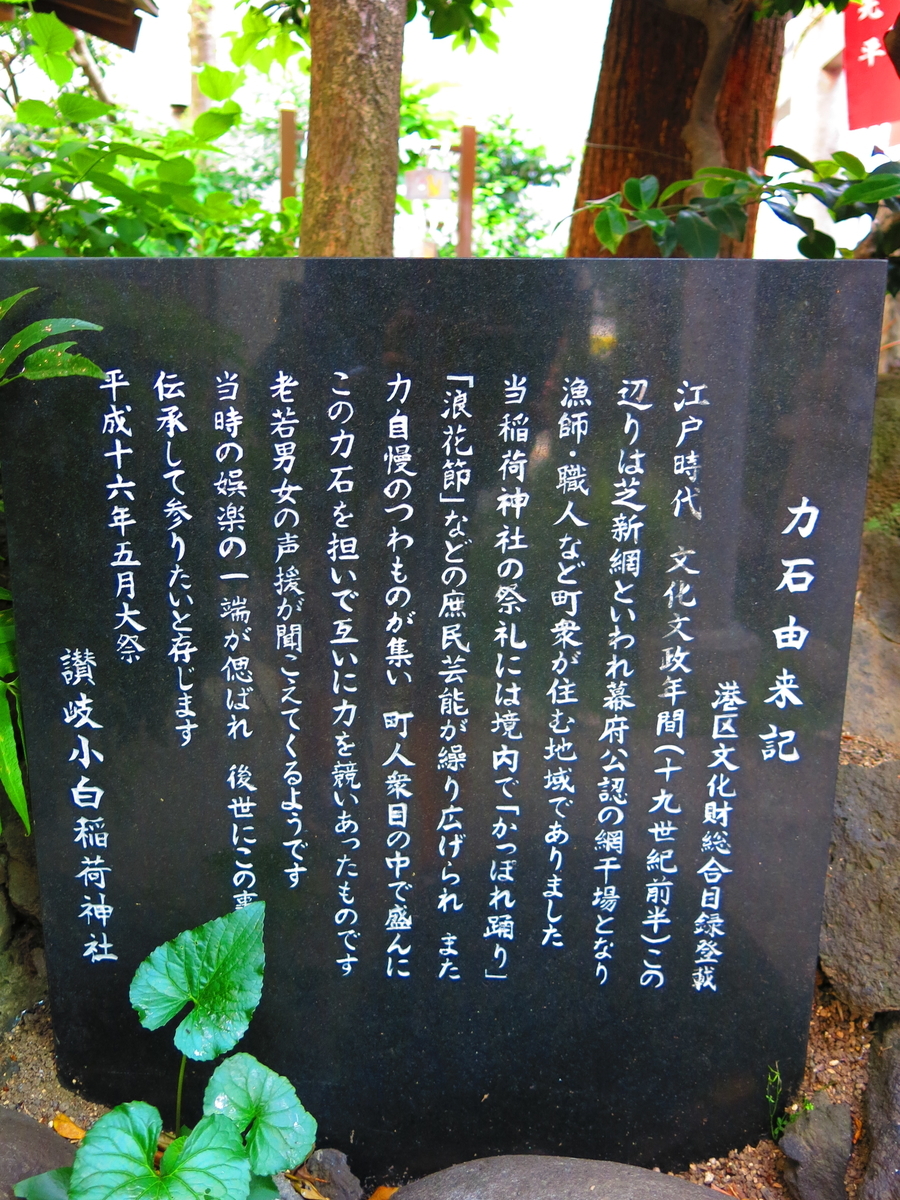 力石由来記
港区文化財総合目録登載
江戸時代　文化文政年間(十九世紀前半)この
辺りは芝新網といわれ幕府公認の網干場となり
漁師・職人など町衆が住む地域でありました
当稲荷神社の祭礼には境内で「かっぽれ踊り」
「浪花節」などの庶民芸能が繰り広げられ　また
力自慢のつわものが集い　町人衆目の中で盛んに
この力石を担いで互いに力を競いあったものです
老若男女の声援が聞こえてくるようです
当時の娯楽の一端が偲ばれ　後世にこの事
伝承して参りたいと存じます
平成十六年五月大祭
讃岐小白稲荷神社